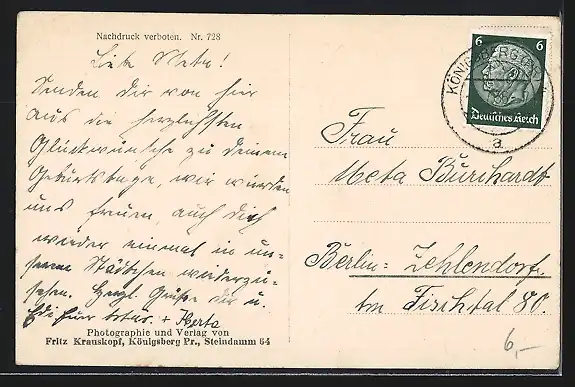 Nachdruck verboten. Nr. 728
Liebe Meta!
Senden dir von hier
aus die herzlichsten
Glückwünsche zu deinem
Geburtstage, wir würden
uns freuen, auch dich
wieder einmal in un=
serem Städtchen wiederzu=
sehen. Herzl. Grüße dir u.
+ Herta
Photographie und Verlag von
Fritz Krauskopf, Königsberg Pr., Steindamm 64
6 6
Deutsches Reich
KÖNIGSBERG (PR)
a
Frau
Meta Burchardt
Berlin=Zehlendorf
Im Fischtal 80.
6,-